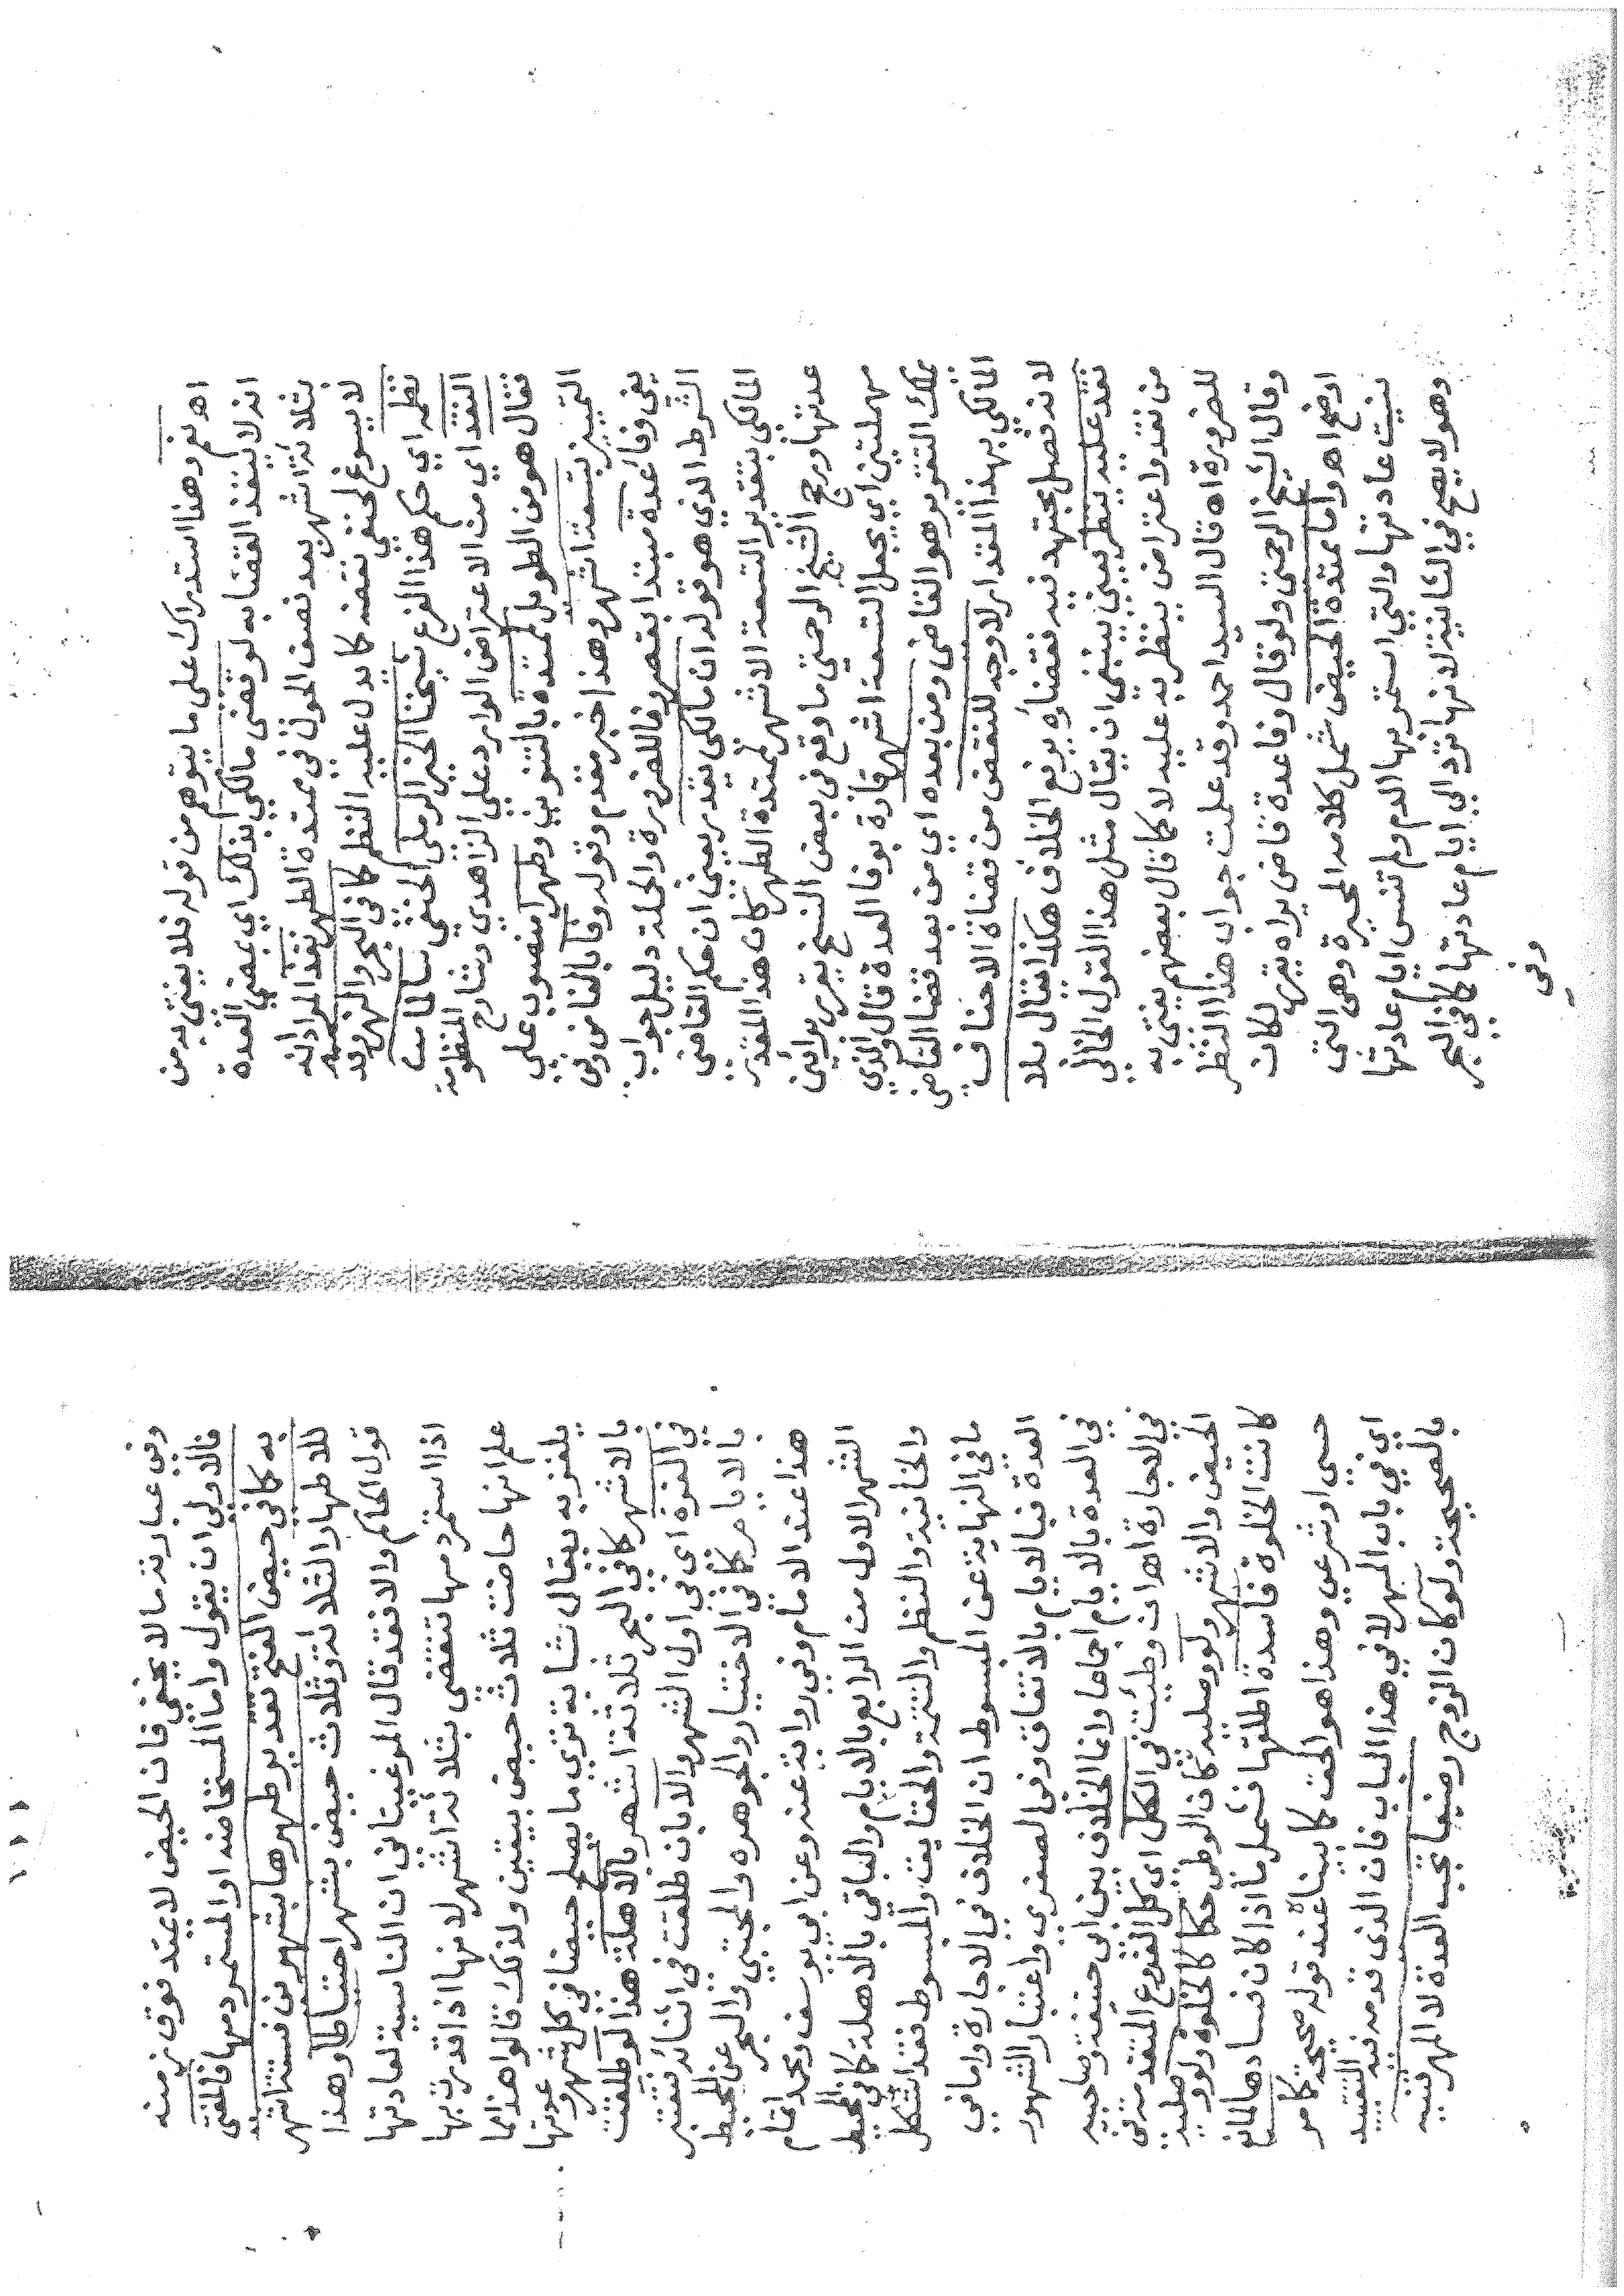 اه نعم وهذا استدراك على ما يتوهم من قوله فلا يفتى به من
انه لا ينفذ القضا به لو قضى مالكي بذلك اي بمضي العدة
بثلاثة اشهر بعد نصف الحول في ممتدة الطهر نفذ المراد انه
لا يسوغ لحنفي نقضه كما يدل عليه النظم كما في البحر والنهر وقد
نظمه اي حكم هذا الفرع شيخنا الخير الرملي الحنفي سالما من
النقد اي من الاعتراض الوارد على الزاهدي وشارح المنظومة
فقال هو من الطويل لممتدة بالتنوين وطهرا منصوب على
التمييز بتسعة اشهر وهذا خبر مقدم وقوله وفا بالفا من وفى
يفي وفا عدة مبتدا بقصر وفا للضرورة والجملة دليل جواب
الشرط الذي هو قوله ان مالكي يقدر يعني ان حكم القاضي
المالكي بتقدير التسعة الاشهر لممتدة الطهر كان هذا المقدر
عدتها ورجح الشيخ الرحمتي ما وقع في بعض النسخ يقرر برائين
مهملتين اي يجعل التسعة اشهر قارة بوفا العدة قال والذي
يملك التقرير هو القاضي ومن بعده اي من بعد قضا القاضي
المالكي بهذا المقدار لا وجه للنقض من قضاة الاحناف
لانه فصل مجتهد فيه فقضاؤه يرفع الخلاف هكذا يقال بلا
نقد عليه ينظر يعني ينبغي ان يقال مثل هذا القول الخالي
من نقد واعتراض ينظر به عليه لا كما قال بعضهم يفتى به
للضرورة اه قال السيد احمد وقد علمت جواب هذا النظر
وقال الشيخ الرحمتي ولو قال وفا عدة قاض يراه يقرر لكان
اوضح اه واما ممتدة الحيض شمل كلامه المحيرة وهي التي
نسيت عادتها والتي استمر بها الدم ولم تنس ايام عادتها
وهو لا يصح في الثانية لانها ترد الى ايام عادتها كما في البحر
وفي
وفي عبارته ما لا يخفى فان الحيض لا يمتد فوق زمنه
فالاولى ان يقول واما المستحاضة او المستمر دمها فالمفتى
به كما في حيض الفتح تقدير طهرها بشهرين فستة اشهر
للاطهار الثلاثة وثلاث حيض بشهر احتياطا وهذا
قول الحاكم والا فقد قال المرغيناني ان الناسية لعادتها
اذا استمر دمها تنقضي بثلاثة اشهر لانها اذا قدرت بها
علم انها حاضت ثلاث حيض بيقين ولذلك قالوا هذا مما
يلغز به يقال شابة ترى ما يصلح حيضا في كل شهر وعدتها
بالاشهر كما في البحر ثلاثة اشهر بالاهلة هذا لو طلقت
في الغرة اي في اول الشهر والا بان طلقت في اثنائه فتعتبر
بالايام كما في الاختيار والجوهرة والمجتبى والبحر عن المحيط
هذا عند الامام وفي رواية عنه وعن ابي يوسف ومحمد اتمام
الشهر الاول من الرابع بالايام والباقي بالاهلة كما في المحيط
والخانية والنظم والتتمة والحقايق والمبسوط فقد اشكل
ما في النهاية عن المبسوط ان الخلاف في الاجارة واما في
العدة فبالايام بالاتفاق وفي الصغرى واعتبار الشهور
في العدة بالايام اجماعا وانما الخلاف بين ابي حنيفة وصاحبيه
في الاجارة اه ان وطئت في الكل اي كل الفروع المتقدمة في
الحيض والاشهر ولو وصلية كان الوطئ حكما كالخلوة ولو وصلية
كانت الخلوة فاسدة اطلقها فشمل ما اذا كان فسادها لمانع
حسي او شرعي وهذا هو الحق كما بيناه عند قوله صحيحة كما مر
اي في باب المهر لا في هذا الباب فان الذي قدمه فيه التقييد
بالصحيحة ولو كان الزوج رضيعا تجب العدة لا المهر قنية